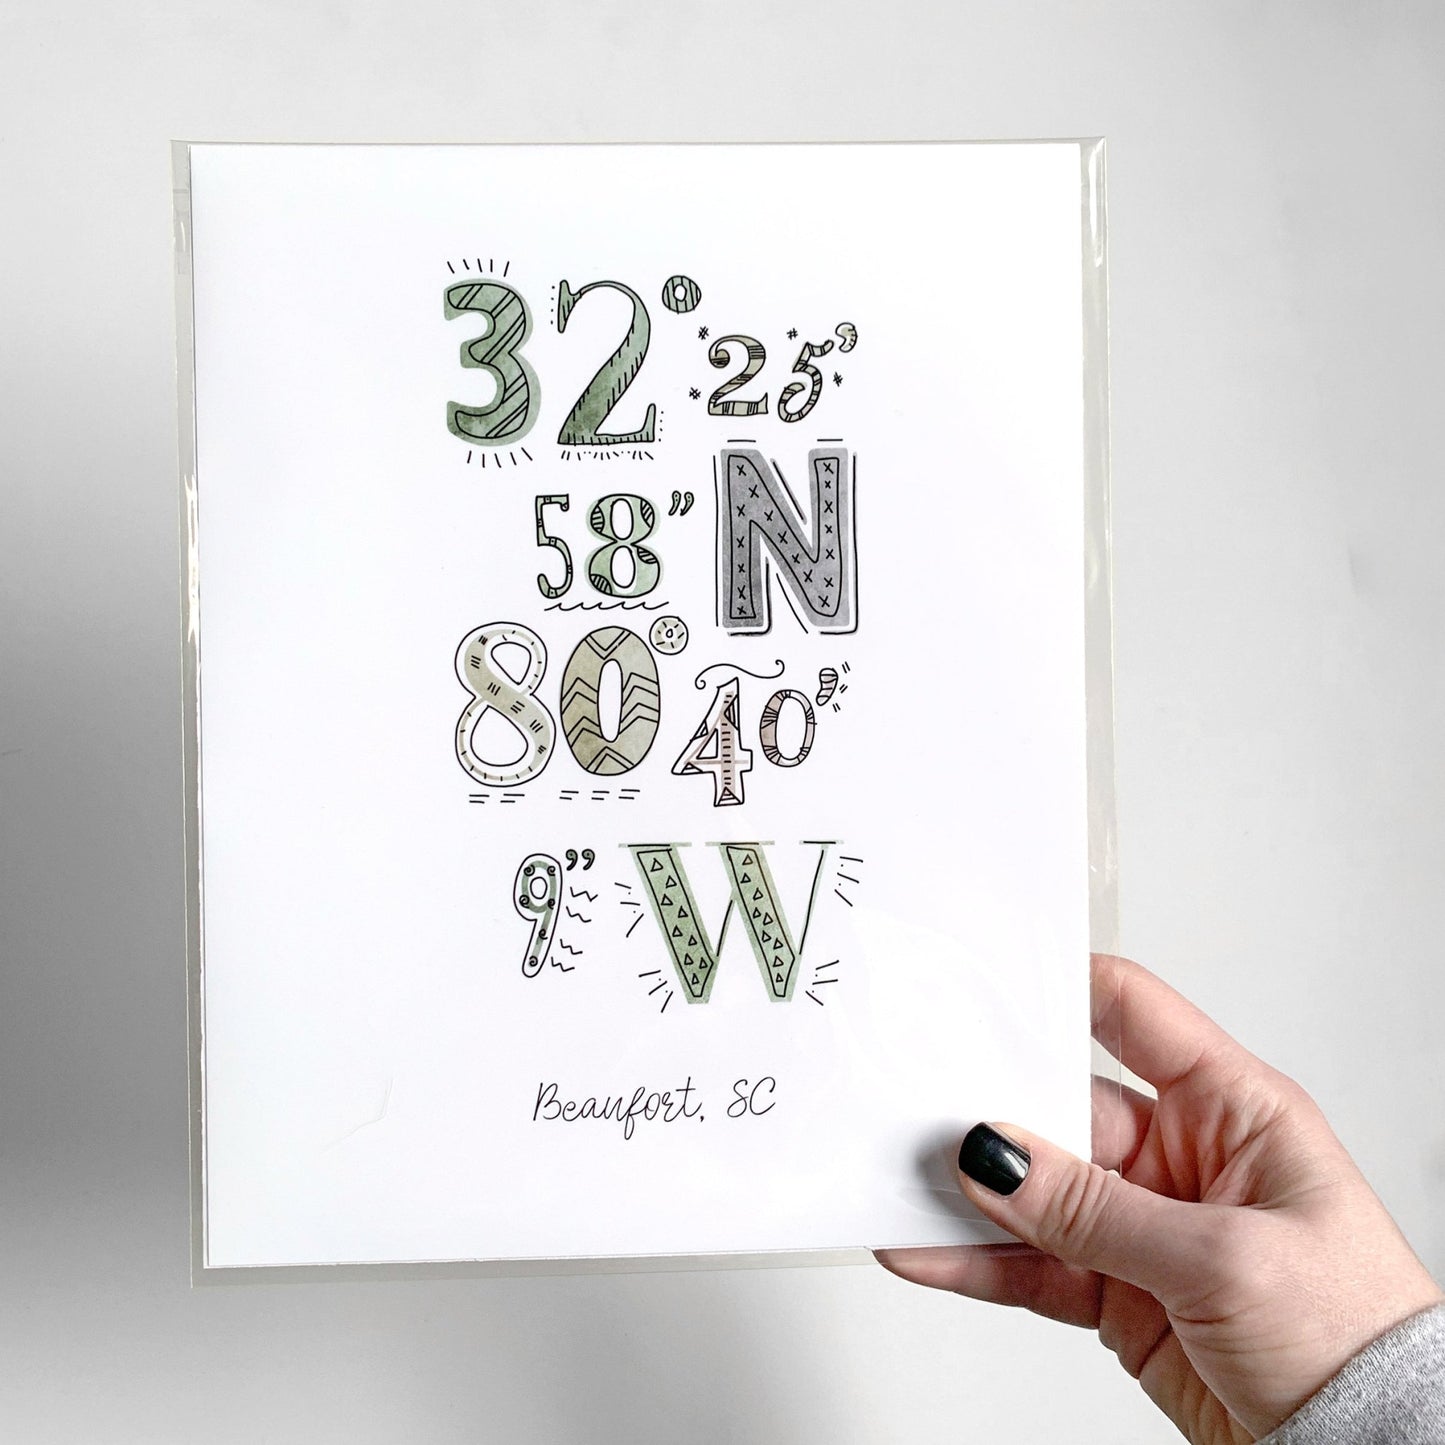 32° 25’
58” N
80° 40’
9” W
Beaufort, SC